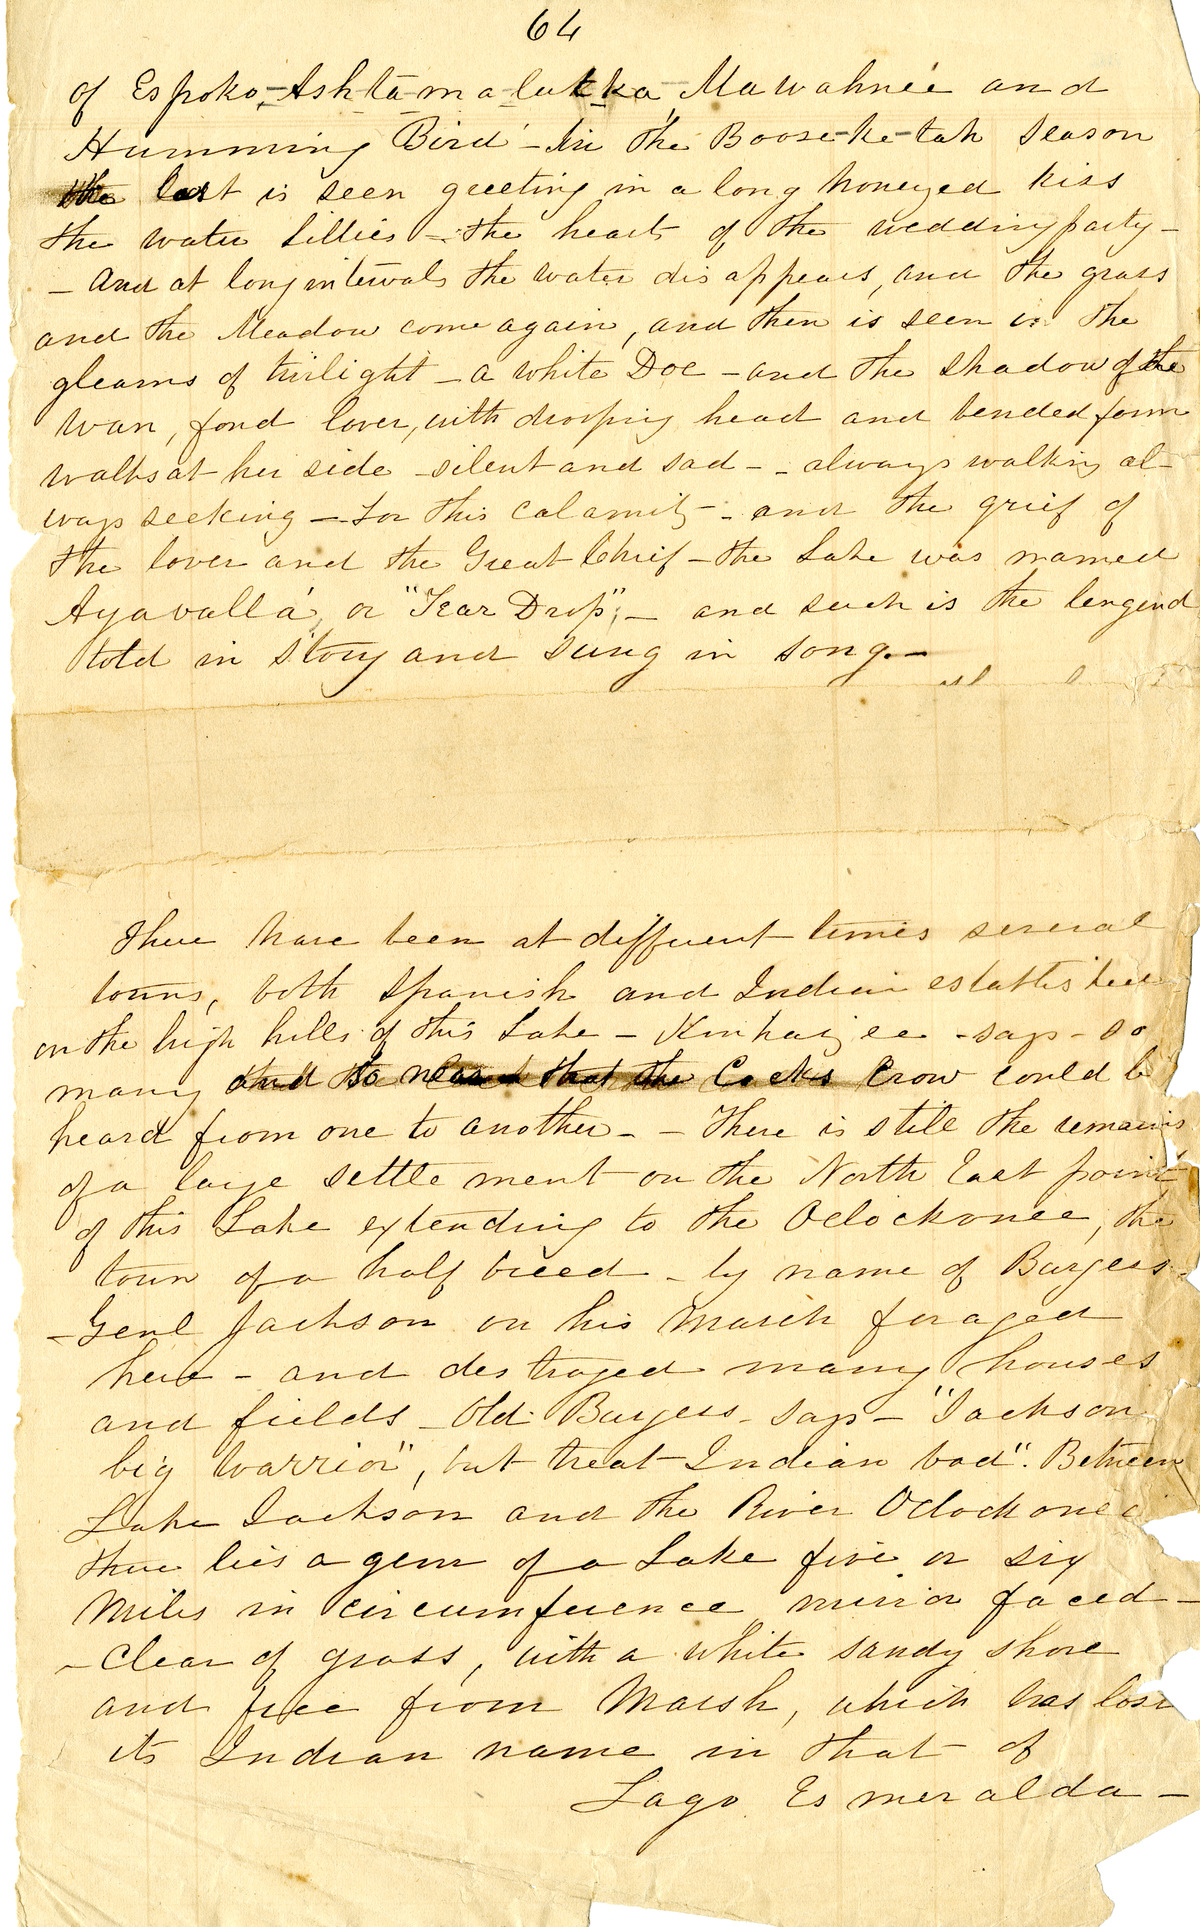 64
of Espoko-Ashtamalukka, Mawahnee and
Humming Bird - In the Boose-ke-tah season
the last is seen greeting in a long honeyed kiss
the water lillies - the hearts of the wedding party -
- And at long intervals the water disappears, and the grass
and the Meadow come again, and then is seen in the
gleams of twilight - a white Doe - and the shadow of the
wan, fond lover, with drooping head and bended form
walks at her side - silent and sad - - always walking al-
ways seeking - For this calamity - and the grief of
the lover and the Great Chief - the Lake was named
Ayavalla, or "Tear Drop"; - and such is the lengend
told in story and sung in song. -
There have been at different times several
towns, both Spanish and Indian established
on the high hills of this Lake - Kinhaijee - says - so
many and so near that the Cocks Crow could be
heard from one to another - - There is still the remains
of a large settlement on the North East point
of this Lake extending to the Oclockonee, the
town of a half breed - by name of Burgess.
- Genl Jackson on his March foraged
here - and destroyed many houses
and fields - Old Burgess - says - "Jackson
big warrior", but treat Indian bad". Between
Lake Jackson and the River Oclockonee
there lies a gem of a Lake five or six
Miles in circumference mirror faced -
- clear of grass, with a white sandy shore
and free from Marsh, which has lost
its Indian name in that of
Lago Esmeralda -